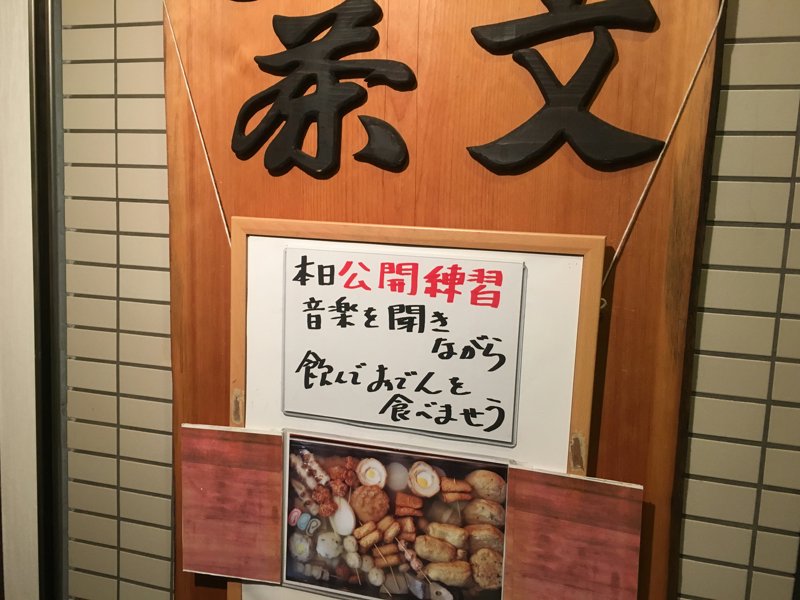 茶文
本日公開練習
音楽を聞き
ながら
飲んでおでんを
食べませう